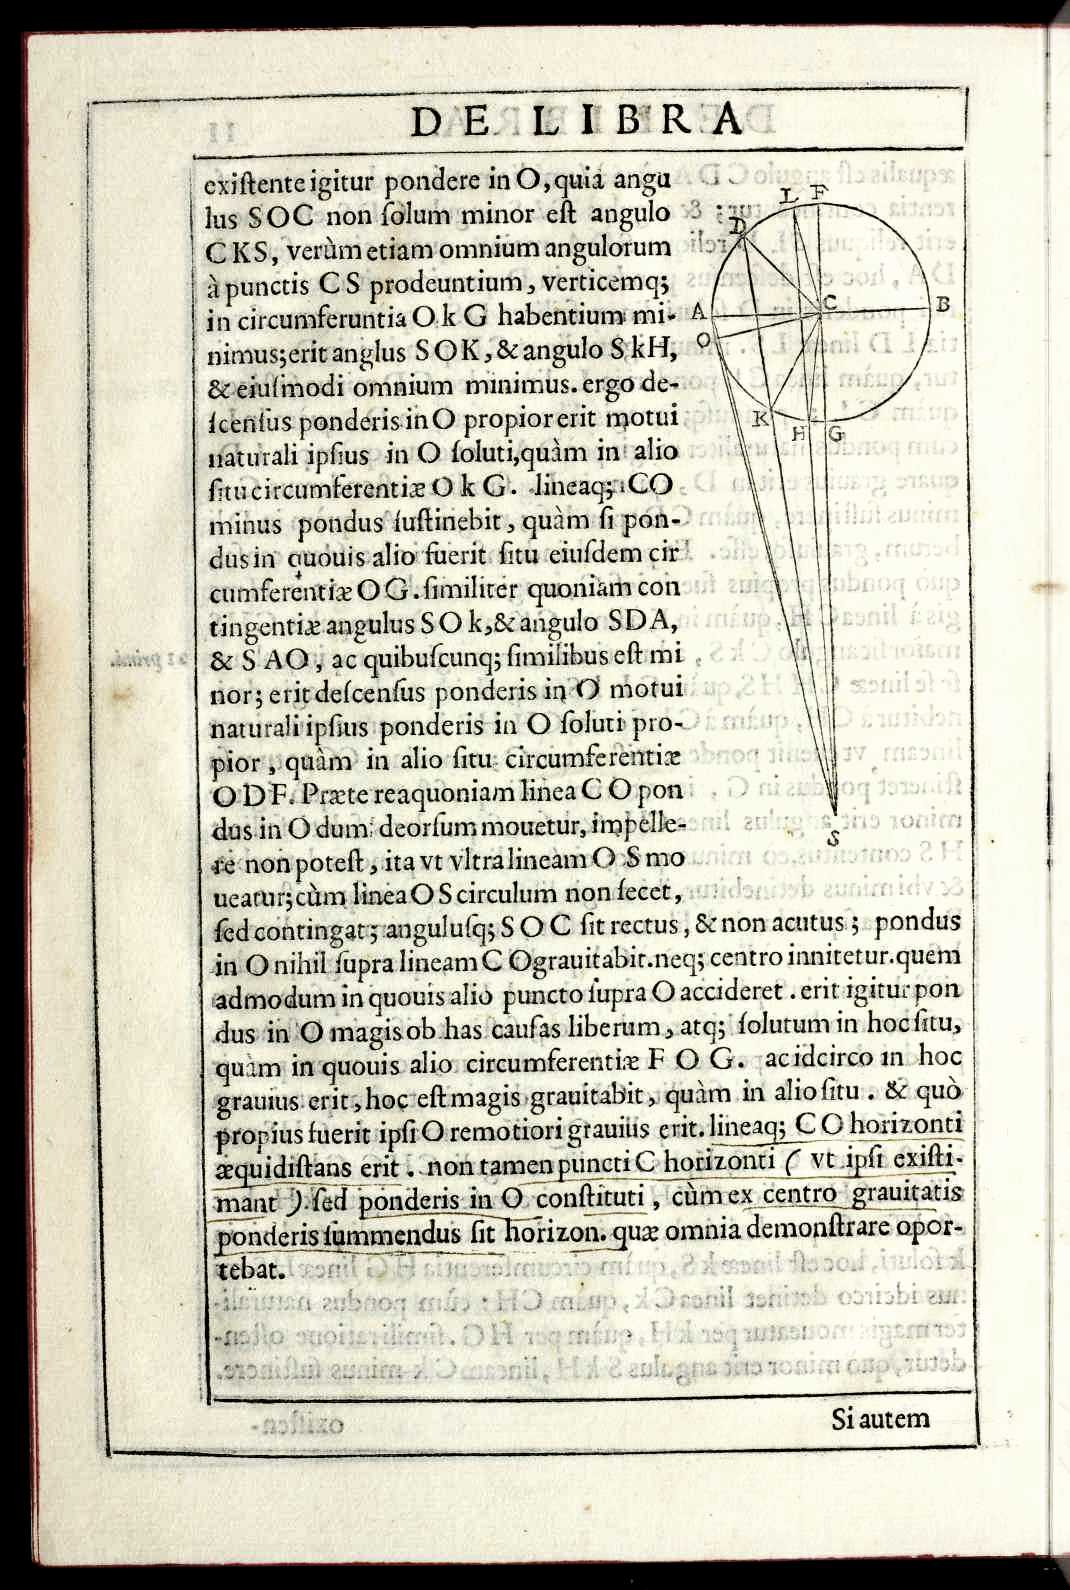 DE LIBRA
existente igitur pondere in O, quia angu
lus SOC non ſolum minor eſt angulo
CKS, verùm etiam omnium angulorum
à punctis CS prodeuntium, verticemq;
in circumferuntia O k G habentium mi-
nimus; erit anglus SOK, & angulo S kH,
& eiuſmodi omnium minimus. ergo de-
ſcenſus ponderis in O propior erit motui
naturali ipſius in O ſoluti, quàm in alio
ſitu circumferentiæ O k G. lineaq; CO
minus pondus ſuſtinebit, quàm ſi pon-
dus in quouis alio fuerit ſitu eiuſdem cir
cumferentiæ O G. ſimiliter quoniam con
tingentiæ angulus S O k, & angulo SDA,
& S AO, ac quibuſcunq; ſimilibus eſt mi
nor; erit deſcenſus ponderis in O motui
naturali ipſius ponderis in O ſoluti pro-
pior, quàm in alio ſitu circumferentiæ
ODF. Præte rea quoniam linea C O pon
dus in O dum deorſum mouetur, impelle-
re non poteſt, ita vt vltra lineam O S mo
ueatur; cùm linea O S circulum non ſecet,
ſed contingat; anguluſq; S O C ſit rectus, & non acutus; pondus
in O nihil ſupra lineam C O grauitabit. neq; centro innitetur. quem
admodum in quouis alio puncto ſupra O accideret. erit igitur pon
dus in O magis ob has cauſas liberum, atq; ſolutum in hoc ſitu,
quàm in quouis alio circumferentiæ F O G. ac idcirco in hoc
grauius erit, hoc eſt magis grauitabit, quàm in alio ſitu. & quò
propius fuerit ipſi O remotiori grauius erit. lineaq; C O horizonti
æquidiſtans erit. non tamen puncti C horizonti ( vt ipſi exiſti-
mant ) ſed ponderis in O conſtituti, cùm ex centro grauitatis
ponderis ſummendus ſit horizon. quæ omnia demonſtrare opor-
tebat.
L F
D
A C B
O
K H G
S
Si autem